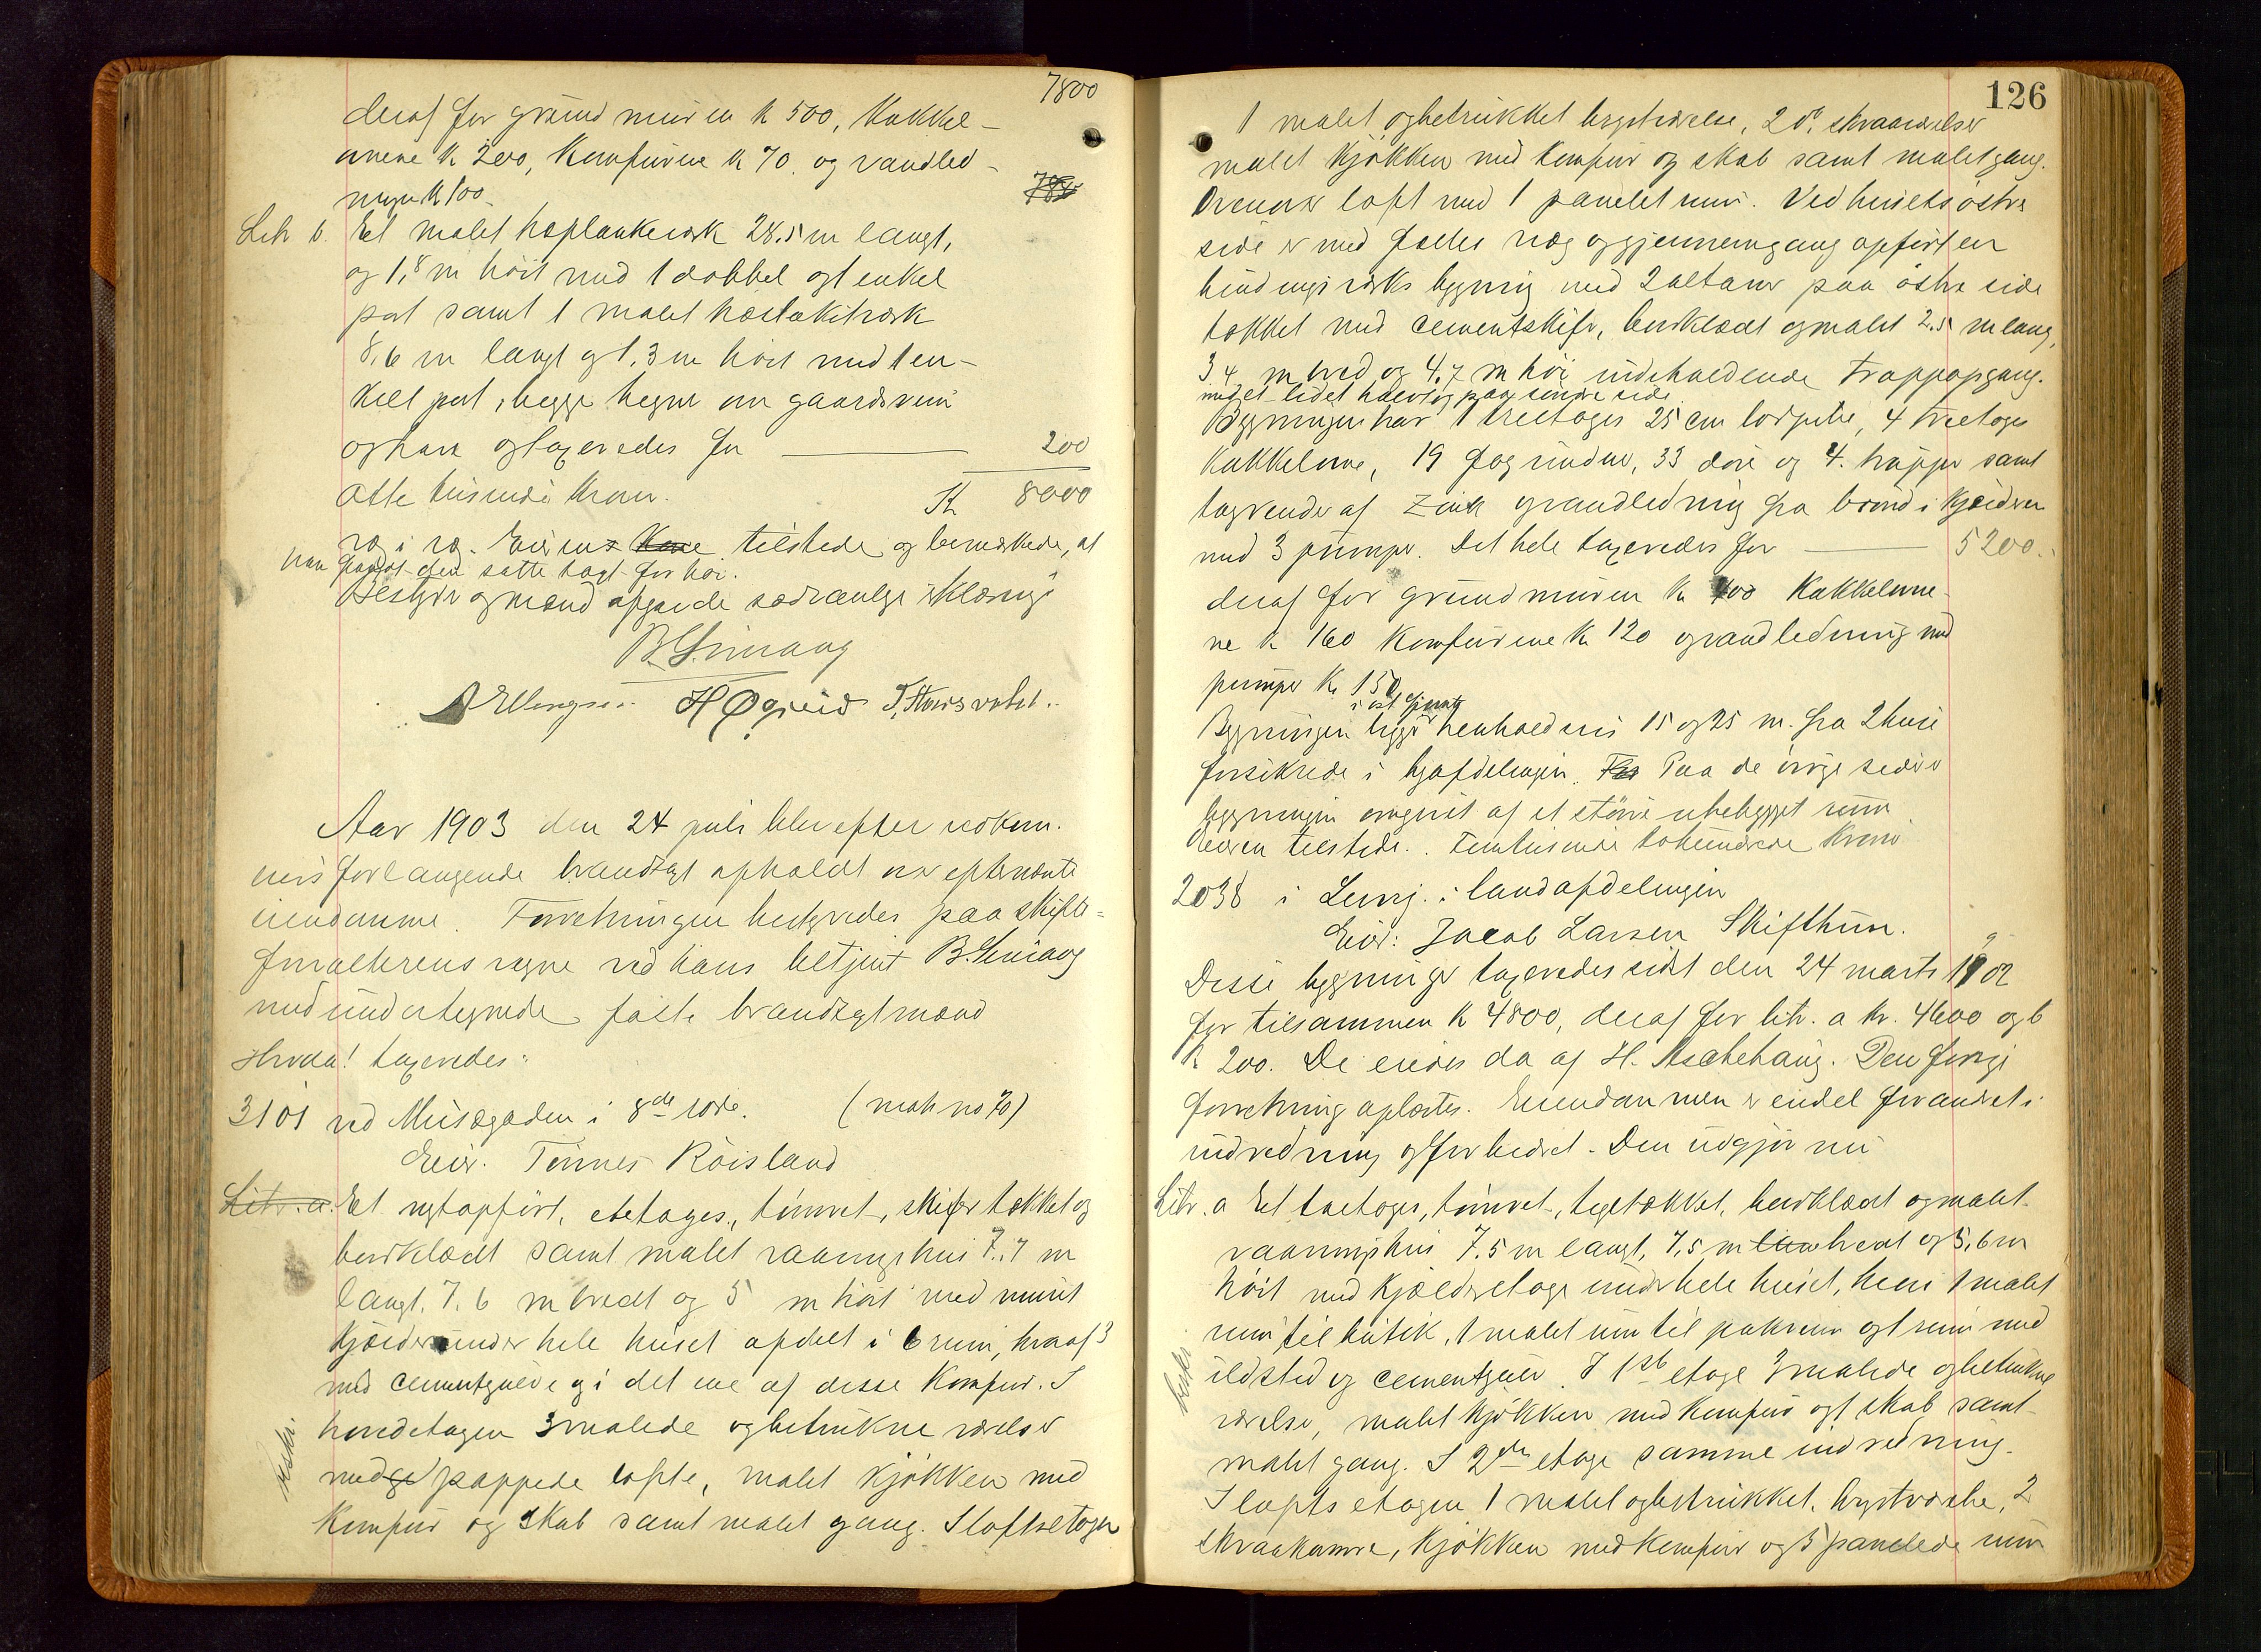 7800
deraf for grundmuren k 500, Kakkel-
ovnene k 200, Komfurene k 70 og vandled-
ningen k 100
Litr b. Et malet hæplankeværk 28.5 m langt,
og 1,8 m höit med 1 dobbel og 1 enkel
port samt 1 malet hæstakitværk
8,6 m langt og 1.3 m höit med 1 en-
kelt port, begge hegner om gaardsrum
og have og taxeredes for 200
Otte tusinde kroner. K 8000
r. i r. Eieren tilstede og bemærkede, at
han fandt den satte taxt for höi.
Bestyrer og mænd afgav de sædvanlige erklæringer
B. Simang
A Ellingsen. H Øgreid T. Horsvoht.
Aar 1903 den 24 juli blev efter vedkom-
mendes forlangende brandtaxt afholdt over efternævnte
eiendomme. Forretningen bestyredes paa skifte-
forvalterens vegne ved hans betjent B. Simang
med undertegnede faste brandtaxtmænd
Hvoda! taxeredes:
3101 ved Musægaden i 8de rode. (matr no 70)
Eier. Tönnes Röisland
Litr. a. Et nytopfört, etetages, tömret, skifertækket og
bordklædt samt malet vaaningshus 7.7 m
langt, 7.6 m bredt og 5 m höit med muret
kjælder under hele huset afdelt i 6 rum, hvoraf 3
med cementgulve og i det ene af disse Komfur. I
hovedetagen 3 malede og betrukne værelser
med pappede lofte, malet kjökken med
Komfur og skab samt malet gang. I loftsetagen
126
1 malet og betrukket kvistværelse, 2 do. skraaværelser
malet kjökken med komfur og skab samt malet gang.
Ovenover loft med 1 panelet rum. Ved husets östre
side er med fælles væg og gjennemgang opfört en
bindingsværks bygning med 2 altaner paa östre side
tækket med cementskifer, bordklædt og malet 2.5 m lang,
3,4 m bred og 4,7 m höi indeholdende trappopgang.
med et lidet halvtag paa söndre side
Bygningen har 1 treetages 25 cm lodpibe, 4 treetages
Kakkelovne, 19 fag vinduer, 33 döre og 4 trapper samt
tagrender af zink og vandledning fra brönd i kjælderen
med 3 pumper. Det hele taxeredes for 5200.
deraf for grundmuren k 400 Kakkelovne-
ne k 160 Komfurene k 120 og vandledning med
pumper k 150
Bygningen ligger henholdsvis 15 og 25 m. fra 2 huse
forsikrede i byafdelingen. Paa de övrige sider er
bygningen omgivet af et större ubebygget rum
Eieren tilstede. Femtusinde tohundrede kroner
2038 i landafdelingen
Eier: Jacob Larsen Skifthun.
Disse bygninger taxeredes sidst den 24 marts 1902
for tilsammen k 4800, deraf for litr. a kr. 4600 og b
k 200. De eiedes da af H. Aschehaug. Den forrige
forretning oplæstes. Eiendommen er endel forandret i
indredning og forbedret. Den udgjör nu
Litr. a Et toetages, tömret, tegltækket, bordklædt og malet
vaaningshus 7.5 m langt, 7,5 m bredt og 5,6 m
höit med kjælderetage under hele huset, heri 1 malet
rum til butik, 1 malet rum til pakrum og 1 rum med
ildsted og cementgulv. I 1ste etage 3 malede og betrukne
værelser, malet kjökken med Komfur og 1 skab samt
malet gang. I 2den etage samme indredning.
I loftsetagen 1 malet og betrukket kvistværelse, 2
skraakamre, kjökken med Komfur og 3 panelede rum